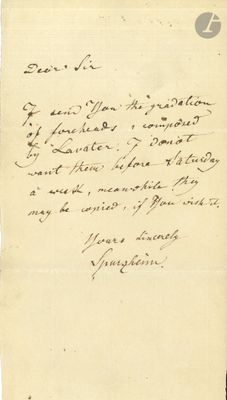 Dear Sir
I send You the gradation
of foreheads, composed
by Lavater. I do not
want them before Saturday
a week, meanwhile they
may be copied, if You wish it.
Yours sincerely
Spurzheim.